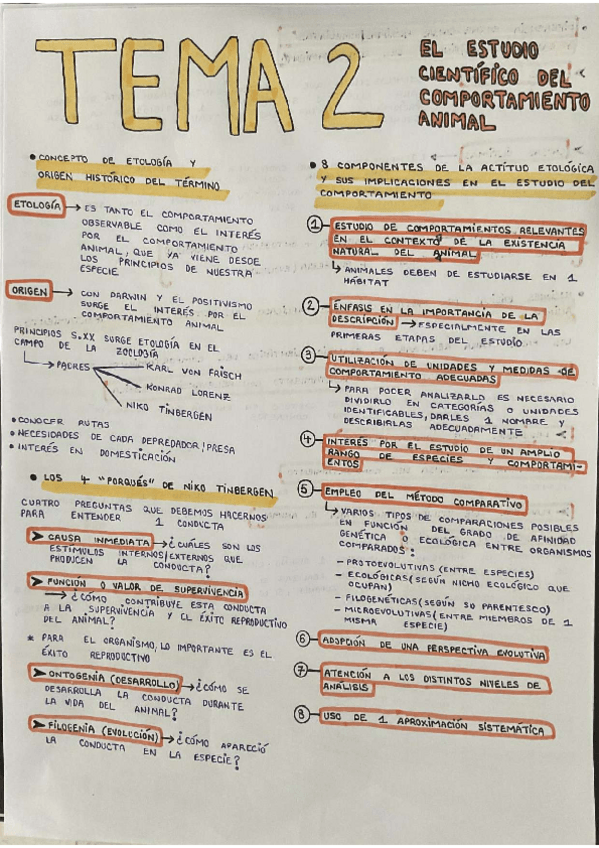 TEMA 2
EL ESTUDIO
CIENTÍFICO DEL
COMPORTAMIENTO
ANIMAL
• CONCEPTO DE ETOLOGÍA Y
ORIGEN HISTÓRICO DEL TÉRMINO
ETOLOGÍA → ES TANTO EL COMPORTAMIENTO
OBSERVABLE COMO EL INTERÉS
POR EL COMPORTAMIENTO
ANIMAL, QUE YA VIENE DESDE
LOS PRINCIPIOS DE NUESTRA
ESPECIE
ORIGEN → CON DARWIN Y EL POSITIVISMO
SURGE EL INTERÉS POR EL
COMPORTAMIENTO ANIMAL
PRINCIPIOS S.XX SURGE ETOLOGÍA EN EL
CAMPO DE LA ZOOLOGÍA
→ PADRES
KARL VON FRISCH
KONRAD LORENZ
NIKO TINBERGEN
• CONOCER RUTAS
• NECESIDADES DE CADA DEPREDADOR/PRESA
• INTERÉS EN DOMESTICACIÓN
• LOS 4 "PORQUÉS" DE NIKO TINBERGEN
CUATRO PREGUNTAS QUE DEBEMOS HACERNOS
PARA ENTENDER 1 CONDUCTA
➤ CAUSA INMEDIATA → ¿CUÁLES SON LOS
ESTÍMULOS INTERNOS/EXTERNOS QUE
PRODUCEN LA CONDUCTA?
➤ FUNCIÓN O VALOR DE SUPERVIVENCIA
→ ¿CÓMO CONTRIBUYE ESTA CONDUCTA
A LA SUPERVIVENCIA Y EL ÉXITO REPRODUCTIVO
DEL ANIMAL?
* PARA EL ORGANISMO, LO IMPORTANTE ES EL
ÉXITO REPRODUCTIVO
➤ ONTOGENIA (DESARROLLO) → ¿CÓMO SE
DESARROLLA LA CONDUCTA DURANTE
LA VIDA DEL ANIMAL?
➤ FILOGENIA (EVOLUCIÓN) → ¿CÓMO APARECIÓ
LA CONDUCTA EN LA ESPECIE?
• 8 COMPONENTES DE LA ACTITUD ETOLÓGICA
Y SUS IMPLICACIONES EN EL ESTUDIO DEL
COMPORTAMIENTO
1 ESTUDIO DE COMPORTAMIENTOS RELEVANTES
EN EL CONTEXTO DE LA EXISTENCIA
NATURAL DEL ANIMAL
↳ ANIMALES DEBEN DE ESTUDIARSE EN 1
HÁBITAT
2 ÉNFASIS EN LA IMPORTANCIA DE LA
DESCRIPCIÓN → ESPECIALMENTE EN LAS
PRIMERAS ETAPAS DEL ESTUDIO
3 UTILIZACIÓN DE UNIDADES Y MEDIDAS DE
COMPORTAMIENTO ADECUADAS
↳ PARA PODER ANALIZARLO ES NECESARIO
DIVIDIRLO EN CATEGORÍAS O UNIDADES
IDENTIFICABLES, DARLES 1 NOMBRE Y
DESCRIBIRLAS ADECUADAMENTE
4 INTERÉS POR EL ESTUDIO DE UN AMPLIO
RANGO DE ESPECIES Y COMPORTAMI-
ENTOS
5 EMPLEO DEL MÉTODO COMPARATIVO
↳ VARIOS TIPOS DE COMPARACIONES POSIBLES
EN FUNCIÓN DEL GRADO DE AFINIDAD
GENÉTICA O ECOLÓGICA ENTRE ORGANISMOS
COMPARADOS:
- PROTOEVOLUTIVAS (ENTRE ESPECIES)
- ECOLÓGICAS (SEGÚN NICHO ECOLÓGICO QUE
OCUPAN)
- FILOGENÉTICAS (SEGÚN SU PARENTESCO)
- MICROEVOLUTIVAS (ENTRE MIEMBROS DE 1
MISMA ESPECIE)
6 ADOPCIÓN DE UNA PERSPECTIVA EVOLUTIVA
7 ATENCIÓN A LOS DISTINTOS NIVELES DE
ANÁLISIS
8 USO DE 1 APROXIMACIÓN SISTEMÁTICA